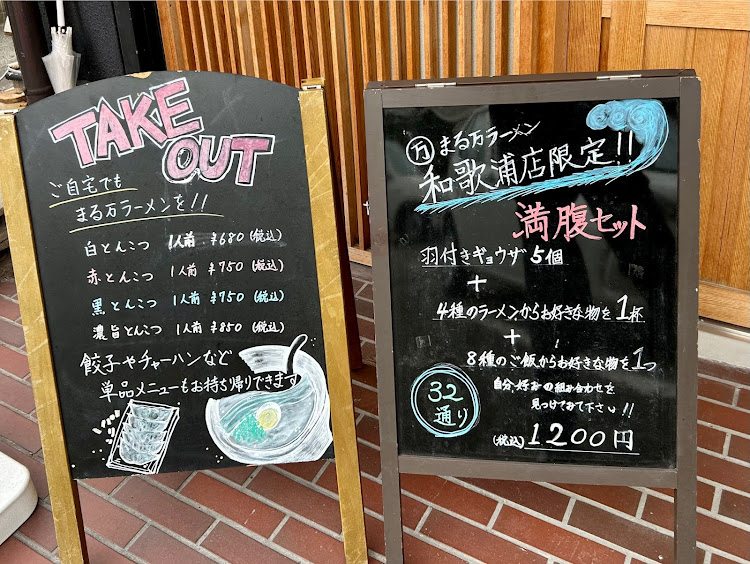 TAKE
OUT
ご自宅でも
まる万ラーメンを!!
白とんこつ 1人前 ¥680(税込)
赤とんこつ 1人前 ¥750(税込)
黒とんこつ 1人前 ¥750(税込)
濃旨とんこつ 1人前 ¥850(税込)
餃子やチャーハンなど
単品メニューもお持ち帰りできます
万 まる万ラーメン
和歌浦店限定!!
満腹セット
羽付きギョウザ5個
+
4種のラーメンからお好きな物を1杯
+
8種のご飯からお好きな物を1つ
32
通り
自分好みの組み合わせを
見つけてみて下さい!!
(税込)1200円